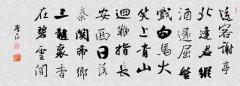 送客謝亭
北逢君縱
酒還屈盤
戲白馬大
笑上青山
迴鞭指長
安西日落
秦關帝鄉
三千里杳
在碧雲間